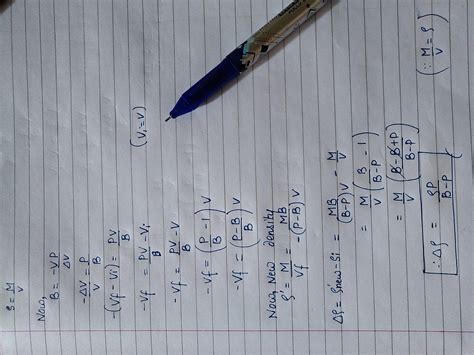 ρ = M/V
Now,
B = -VP/ΔV
-ΔV/V = P/B
-(Vf - Vi) = PV/B
-Vf = PV/B - Vi
(Vi = V)
-Vf = PV/B - V
-Vf = (P/B - 1) V
-Vf = (P-B/B) V
Now, new density
ρ' = M/Vf = MB/-(P-B)V
Δρ = ρnew - ρi = MB/(B-P)V - M/V
= M/V (B/B-P - 1)
= M/V (B-B+P/B-P)
∴ Δρ = ρP/B-P (∵ M/V = ρ)